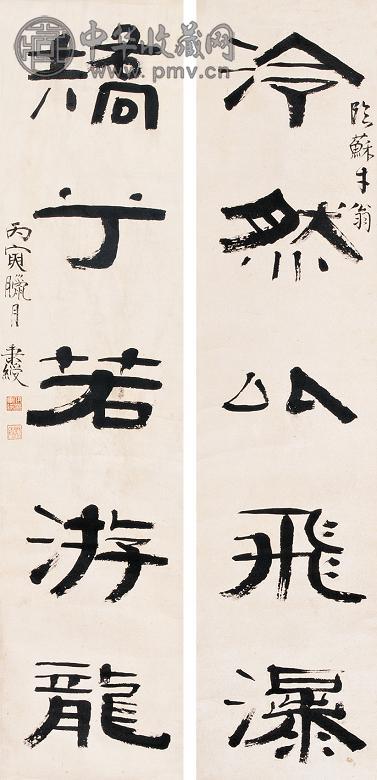 中华收藏网
www.pmv.cn
泠然以飛瀑
臨蘇才翁
矯乎若游龍
丙寅臘月 秉綬